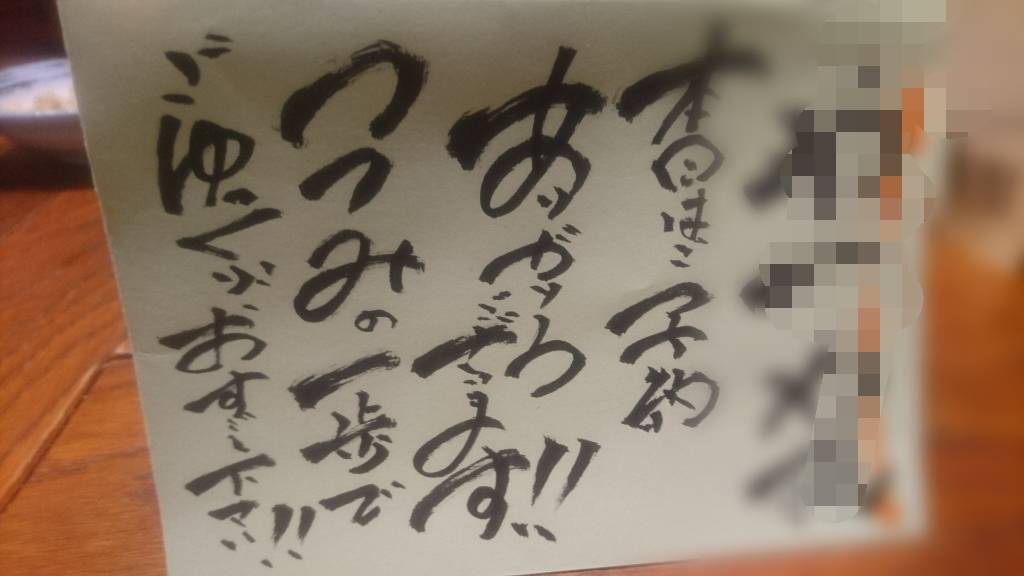 本日はご予約
ありがとうございます!!
つつみの一歩で
ごゆっくりおすごし下さい!!